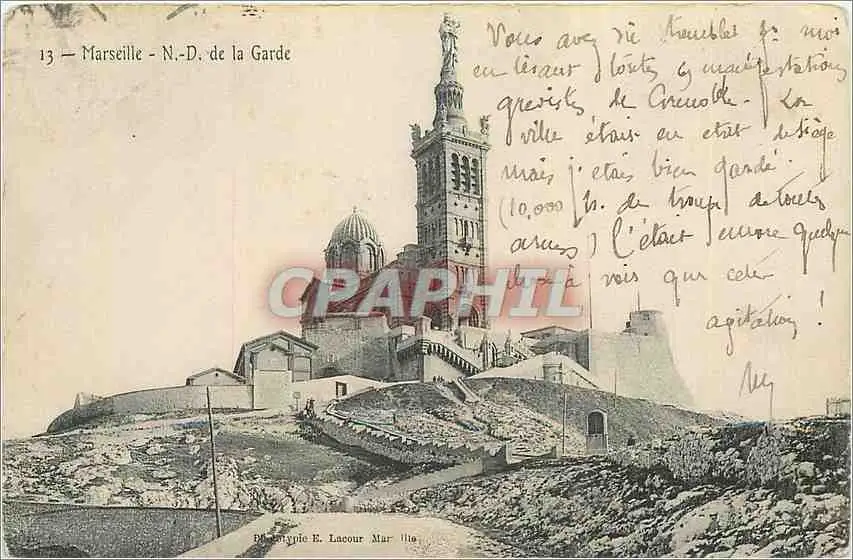 13 — Marseille - N.-D. de la Garde
Vous avez dû trembler pr moi
en lisant toutes manifestations
grévistes de Grenoble. La
ville était en état de siège
mais j'étais bien gardé.
(10,000 h. de troupe de toutes
armes) C'était encore quelque
à voir que cette
agitation !
CPARPHIL
Phototypie E. Lacour Marseille